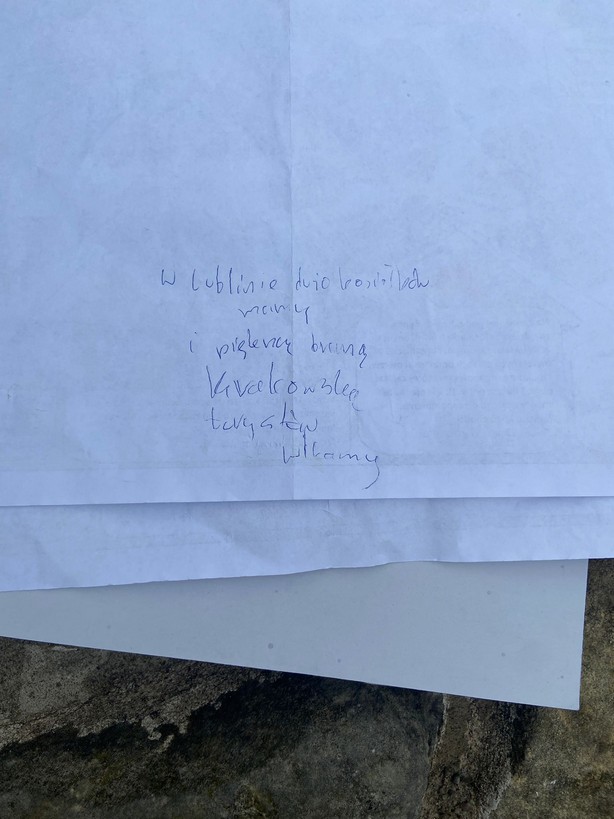 W Lublinie dużo kościołów
mamy
i piękną bramą
Krakowską
turystów
witamy